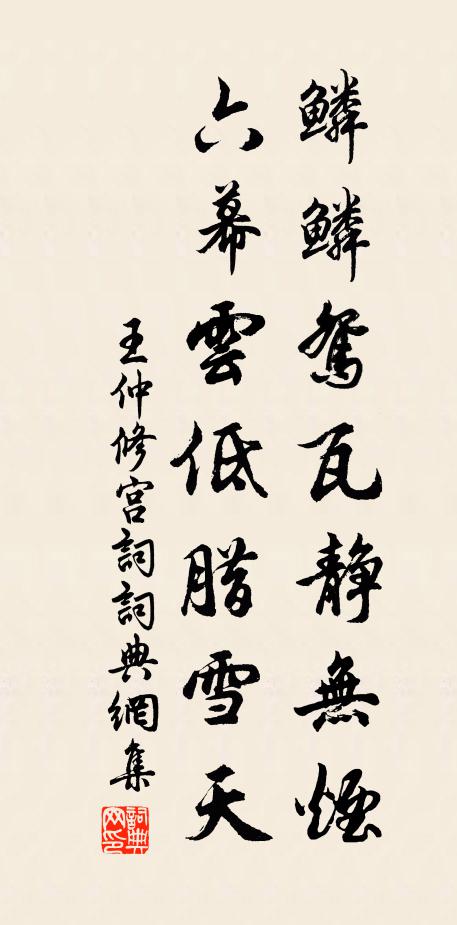 鱗鱗鴛瓦靜無煙
六幕雲低腊雪天
王仲修宮詞詞典網集
詞典網印